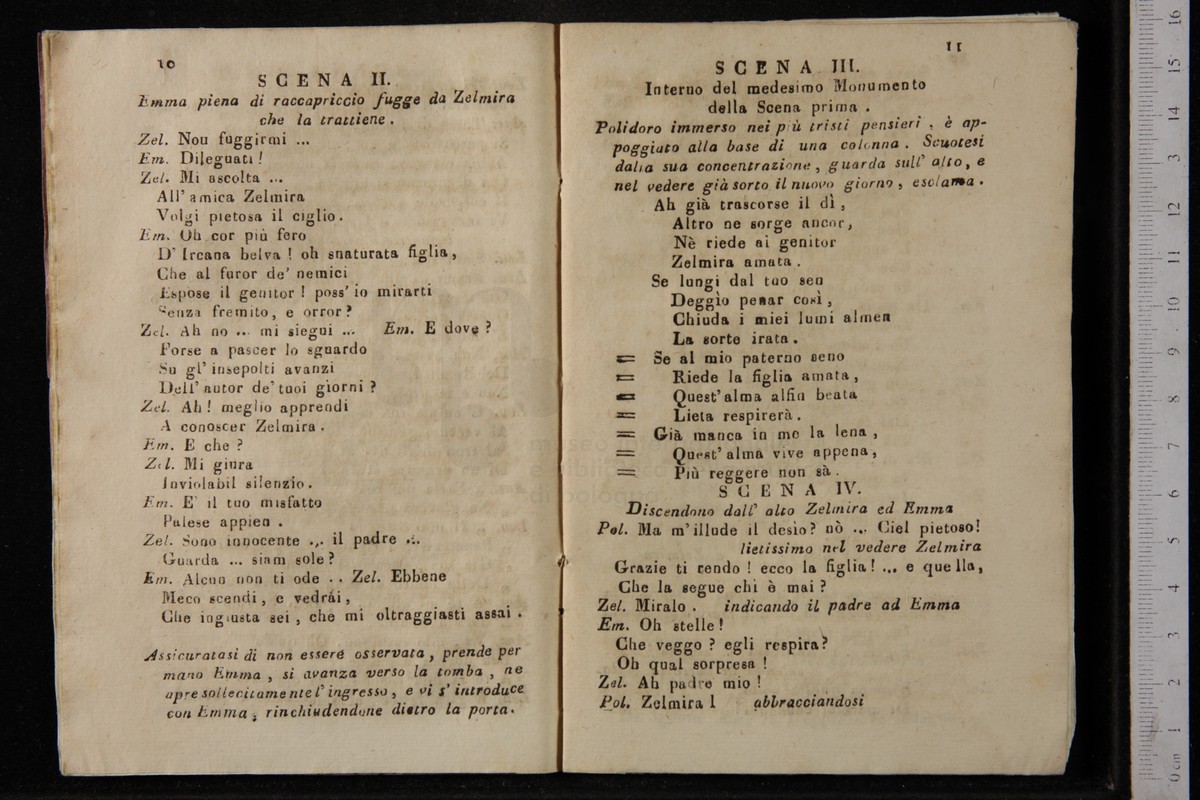 10
SCENA II.
Emma piena di raccapriccio fugge da Zelmira
che la trattiene.
Zel. Non fuggirmi ...
Em. Dileguati!
Zel. Mi ascolta ...
All' amica Zelmira
Volgi pietosa il ciglio.
Em. Oh cor più fero
D' Ircana belva! oh snaturata figlia,
Che al furor de' nemici
Espose il genitor! poss' io mirarti
Senza fremito, e orror?
Zel. Ah no ... mi siegui ... Em. E dove?
Forse a pascer lo sguardo
Su gl' insepolti avanzi
Dell' autor de' tuoi giorni?
Zel. Ah! meglio apprendi
A conoscer Zelmira.
Em. E che?
Zel. Mi giura
Inviolabil silenzio.
Em. E' il tuo misfatto
Palese appien.
Zel. Sono innocente ... il padre ...
Guarda ... siam sole?
Em. Alcun non ti ode . . Zel. Ebbene
Meco scendi, e vedrai,
Che ingiusta sei, che mi oltraggiasti assai.
Assicuratasi di non essere osservata, prende per
mano Emma, si avanza verso la tomba, ne
apre sollecitamente l' ingresso, e vi s' introduce
con Emma, rinchiudendone dietro la porta.
11
SCENA III.
Interno del medesimo Monumento
della Scena prima.
Polidoro immerso nei più tristi pensieri, è ap-
poggiato alla base di una colonna. Scuotesi
dalla sua concentrazione, guarda sull' alto, e
nel vedere già sorto il nuovo giorno, esclama.
Ah già trascorse il dì,
Altro ne sorge ancor,
Nè riede al genitor
Zelmira amata.
Se lungi dal tuo sen
Deggio penar così,
Chiuda i miei lumi almen
La sorte irata.
= Se al mio paterno seno
= Riede la figlia amata,
= Quest' alma alfin beata
= Lieta respirerà.
= Già manca in me la lena,
= Quest' alma vive appena,
= Più reggere non sà.
SCENA IV.
Discendono dall' alto Zelmira ed Emma
Pol. Ma m' illude il desìo? nò ... Ciel pietoso!
lietissimo nel vedere Zelmira
Grazie ti rendo! ecco la figlia! ... e quella,
Che la segue chi è mai?
Zel. Miralo. indicando il padre ad Emma
Em. Oh stelle!
Che veggo? egli respira?
Oh qual sorpresa!
Zel. Ah padre mio!
Pol. Zelmira! abbracciandosi